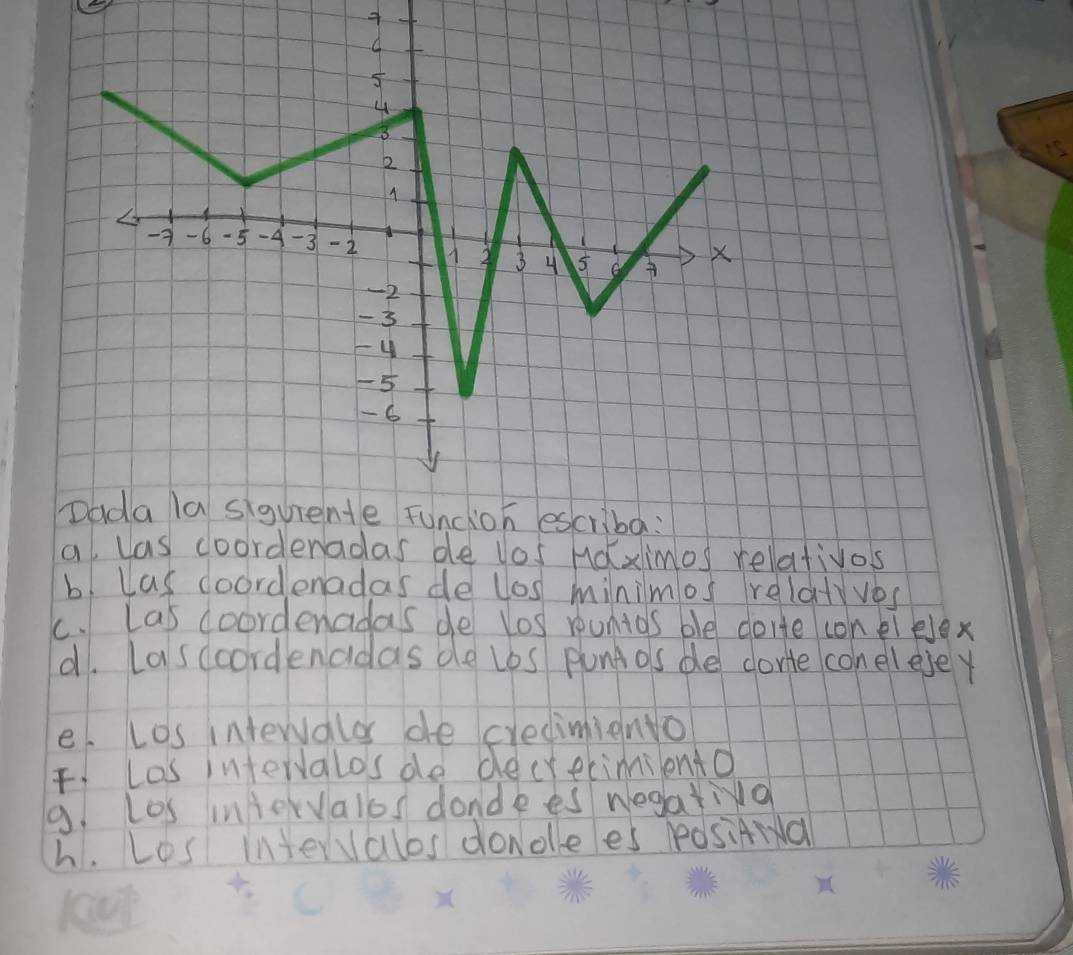 7
6
5
4
3
2
1
-7 -6 -5 -4 -3 -2 1 2 3 4 5 6 7 X
-2
-3
-4
-5
-6
Dada la siguiente Función escriba:
a. Las coordenadas de los Máximos relativos
b. Las coordenadas de los minimos relativos
c. Las coordenadas de los puntos de corte con el eje x
d. Las coordenadas de los puntos de corte con el eje y
e. Los intervalos de crecimiento
F. Los intervalos de decrecimiento
g. Los intervalos donde es negativa
h. Los intervalos donde es positiva
15